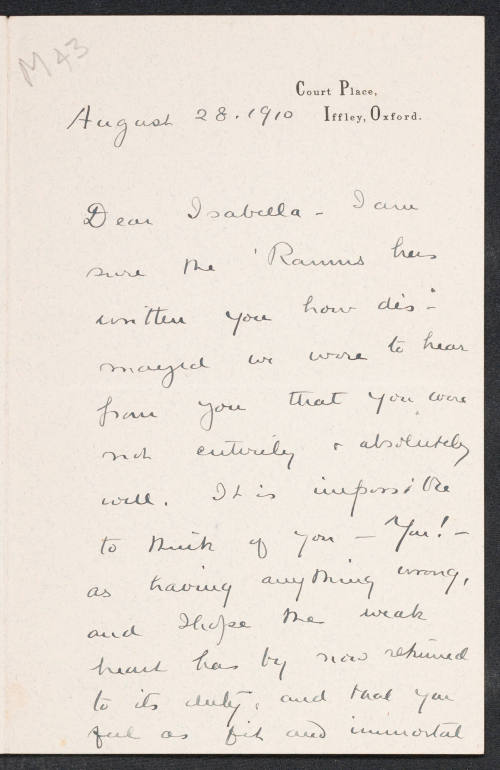 M 43
Court Place,
Iffley, Oxford.
August 28. 1910
Dear Isabella - I am
sure the 'Ramus has
written you how dis-
mayed we were to hear
from you that you were
not entirely & absolutely
well. It is impossible
to think of you - You! -
as having anything wrong,
and I hope the weak
heart has by now returned
to its duty, and that you
feel as fit and immortal